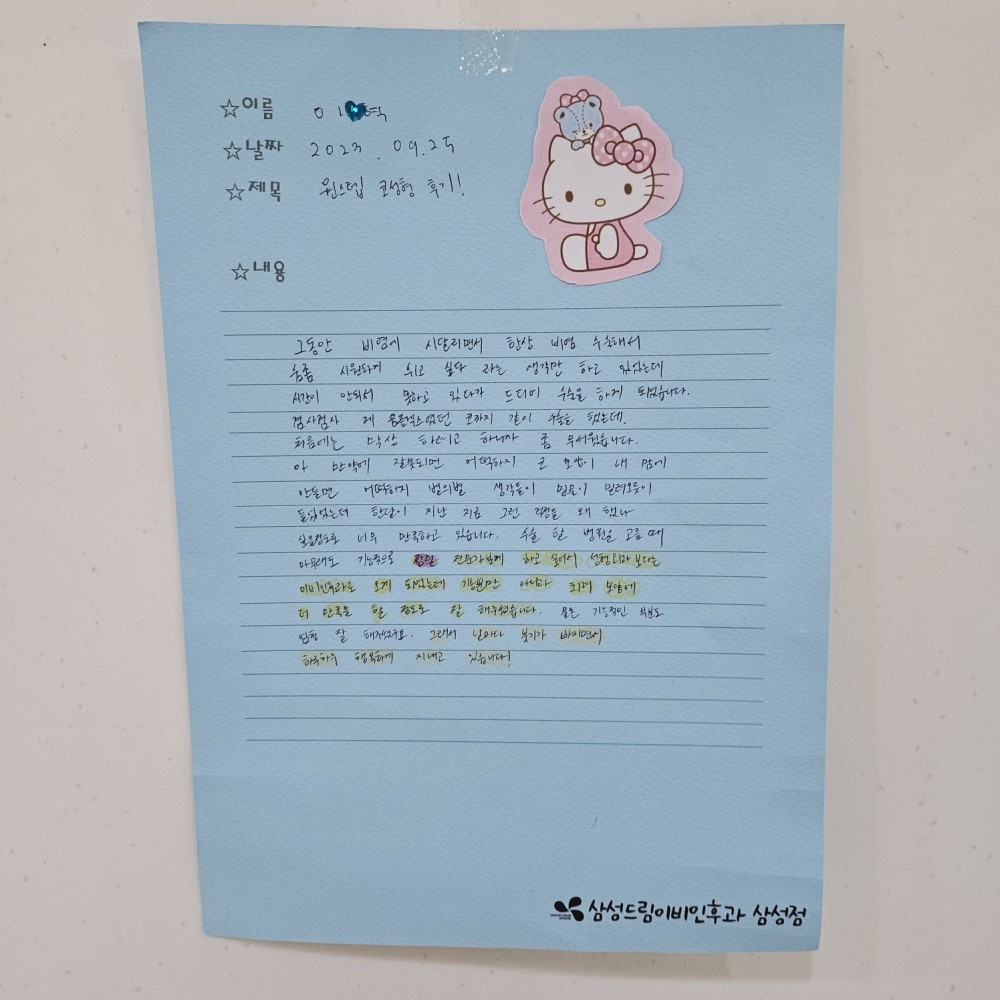 ☆이름 이 혁
☆날짜 2023.09.25
☆제목 원스텝 코성형 후기!
☆내용
그동안 비염에 시달리면서 항상 비염 수술해서
숨좀 시원하게 쉬고 싶다 라는 생각만 하고 있었는데
시간이 안되서 못하고 있다가 드디어 수술을 하게 되었습니다.
겸사겸사 제 콤플렉스였던 코까지 같이 수술을 했는데.
처음에는 막상 하려고 하니까 좀 무서웠습니다.
아 만약에 잘못되면 어떡하지 코 모양이 내 맘에
안들면 어떡하지 별의별 생각들이 밀려오듯이
들었었는데 한달이 지난 지금 그런 걱정을 왜 했나
싶을정도로 너무 만족하고 있습니다. 수술 할 병원을 고를 때
아무래도 기능쪽으로 전문가분께 하고 싶어서 성형외과 보다는
이비인후과로 오게 되었는데 기능뿐만 아니라 외적 모양에
더 만족을 할 정도로 잘 해주셨습니다. 물론 기능적인 부분도
엄청 잘 해주셨구요. 그래서 날마다 붓기가 빠지면서
하루하루 행복하게 지내고 있습니다!
삼성드림이비인후과 삼성점